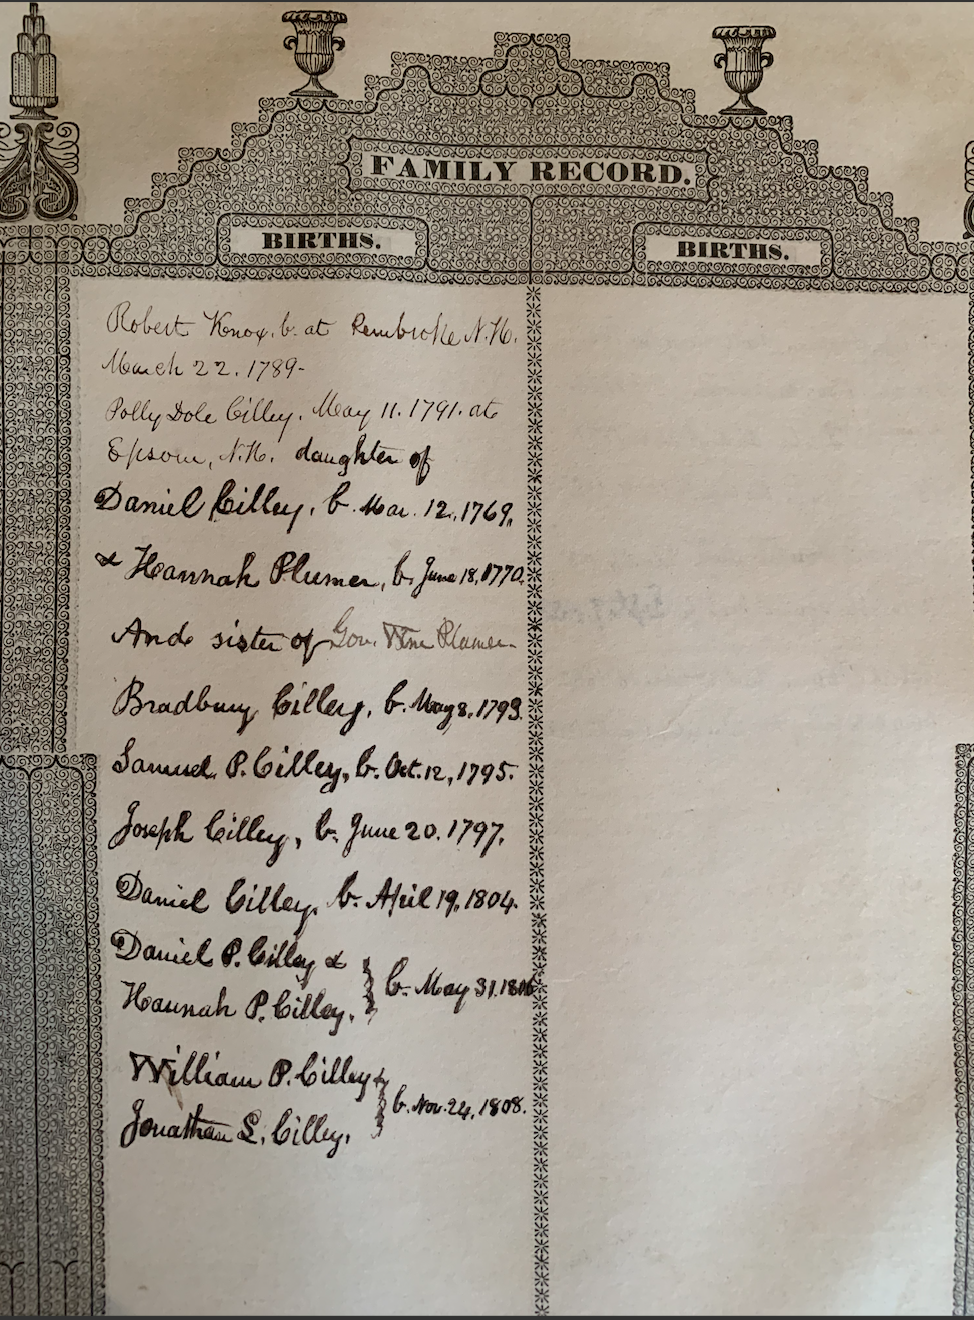 FAMILY RECORD.
BIRTHS.
Robert Knox, b. at Pembroke N.H.
March 22. 1789-
Polly Dole Cilley. May 11. 1791. at
Epsom, N.H. daughter of
Daniel Cilley, b. Mar. 12, 1769,
& Hannah Plumer, b. June 18, 1770.
And sister of Gov. Wm Plumer.
Bradbury Cilley, b. May 8, 1793.
Samuel P. Cilley, b. Oct. 12, 1795.
Joseph Cilley, b. June 20. 1797.
Daniel Cilley, b. April 19, 1804.
Daniel P. Cilley &
b. May 31, 1806
Hannah P. Cilley.
William P. Cilley &
b. Nov. 24, 1808.
Jonathan L. Cilley.
BIRTHS.